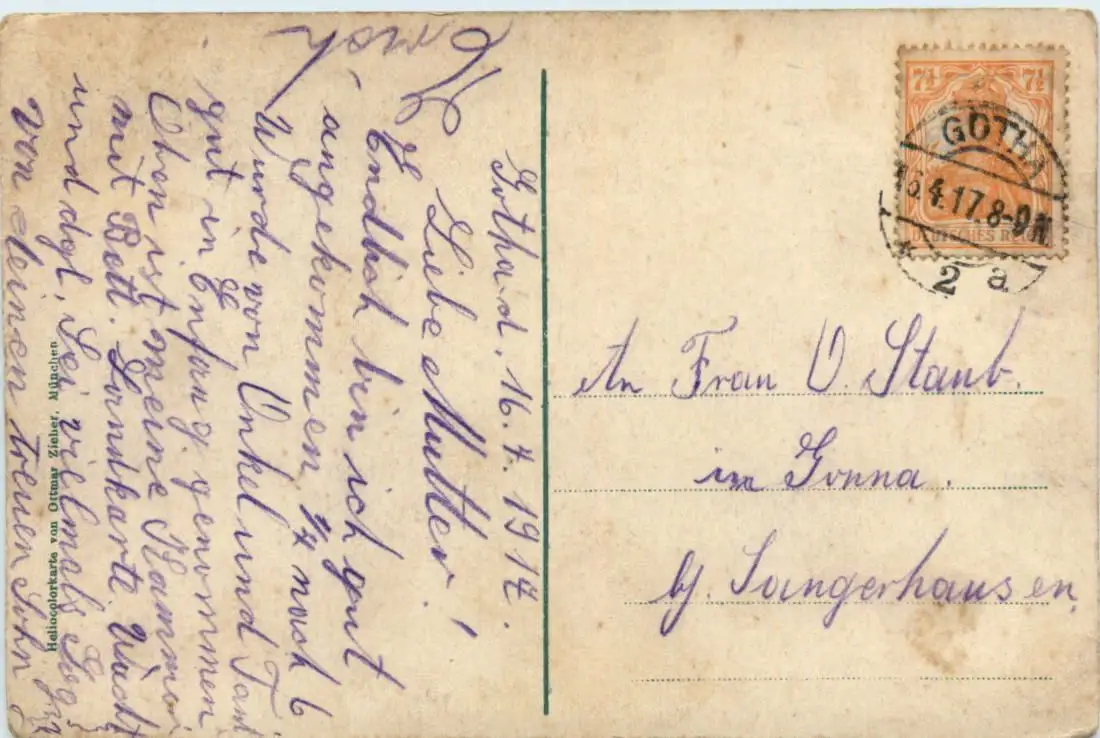 Gotha d. 16.4.1917.
Liebe Mutter!
Endlich bin ich gut
angekommen 1/4 nach 6
Wurde von Onkel und Tant
gut in Enfang genommen
Oben ist meine Kammer
mit Bett. Landkarte
und dgl. Sei vielmals
von deinen treuen Sohn
Heliocolorkarte von Ottmar Zieher, München
7½ 7½
DEUTSCHES REICH
GOTHA
16.4.17.8-9N.
* 2 a
An Frau O. Staub.
in Gonna.
b/. Sangerhausen,